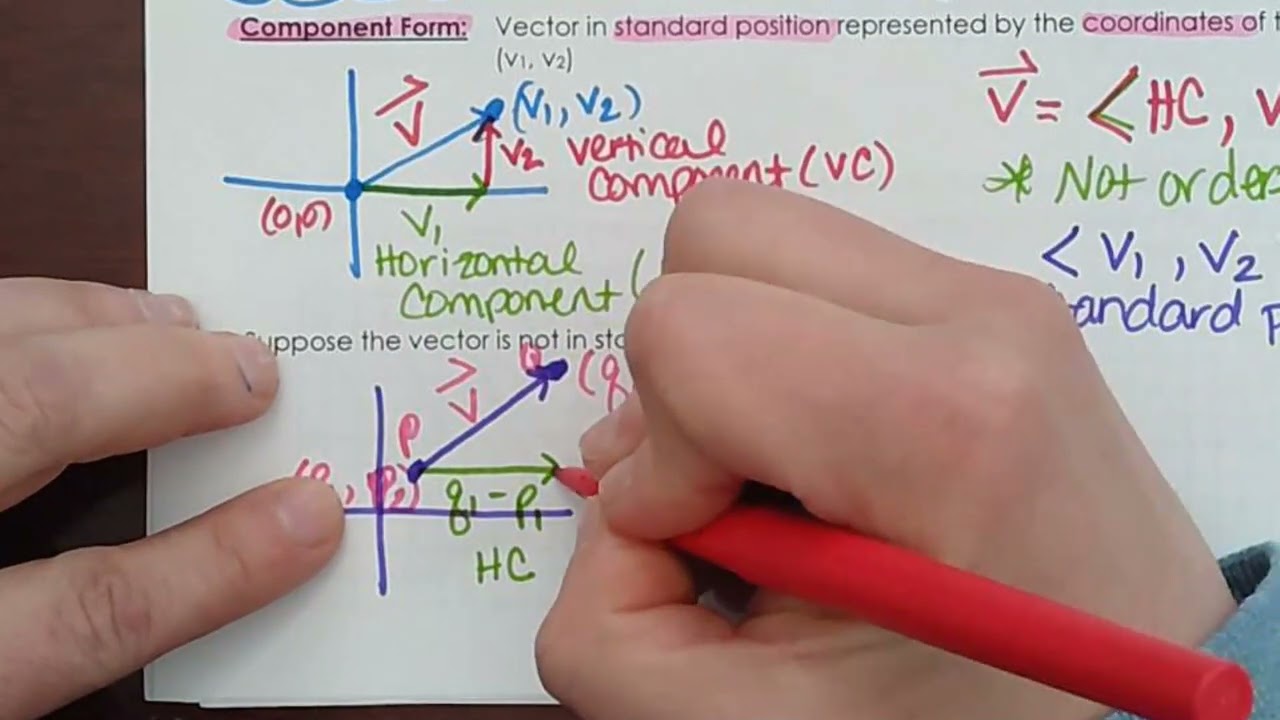 Component Form: Vector in standard position represented by the coordinates of
(v₁, v₂)
V (V₁, V₂)
V₂ vertical
component (VC)
(0,0)
V₁
Horizontal
component (
V = <HC, V
* Not order
< V₁, V₂
tandard p
uppose the vector is not in sta
V Q (q
P
q₁ - p₁
HC